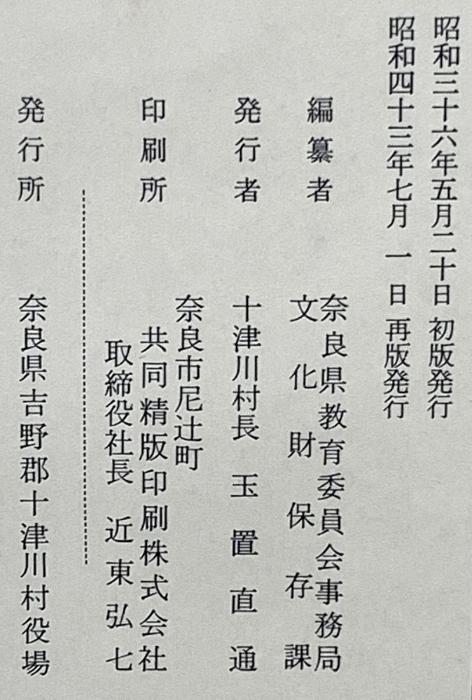 昭和三十六年五月二十日 初版発行
昭和四十三年七月 一 日 再版発行
編纂者 奈良県教育委員会事務局
文化財保存課
発行者 十津川村長 玉置直通
奈良市尼辻町
印刷所 共同精版印刷株式会社
取締役社長 近東弘七
発行所 奈良県吉野郡十津川村役場